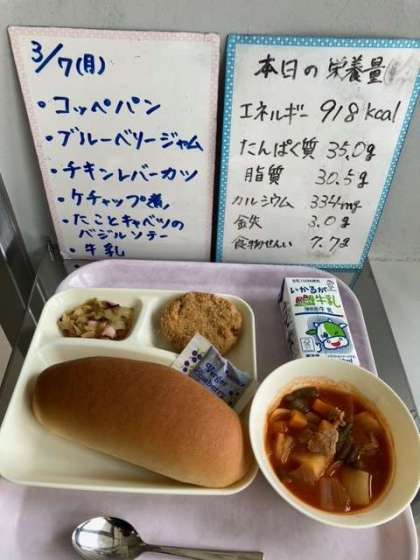 3/7(月)
・コッペパン
・ブルーベリージャム
・チキンレバーカツ
・ケチャップ煮
・たことキャベツの
バジルソテー
・牛乳
本日の栄養量
エネルギー 918kcal
たんぱく質 35.0g
脂質 30.5g
カルシウム 334mg
金失 3.0g
食物せんい 7.7g
いかるが
牛乳